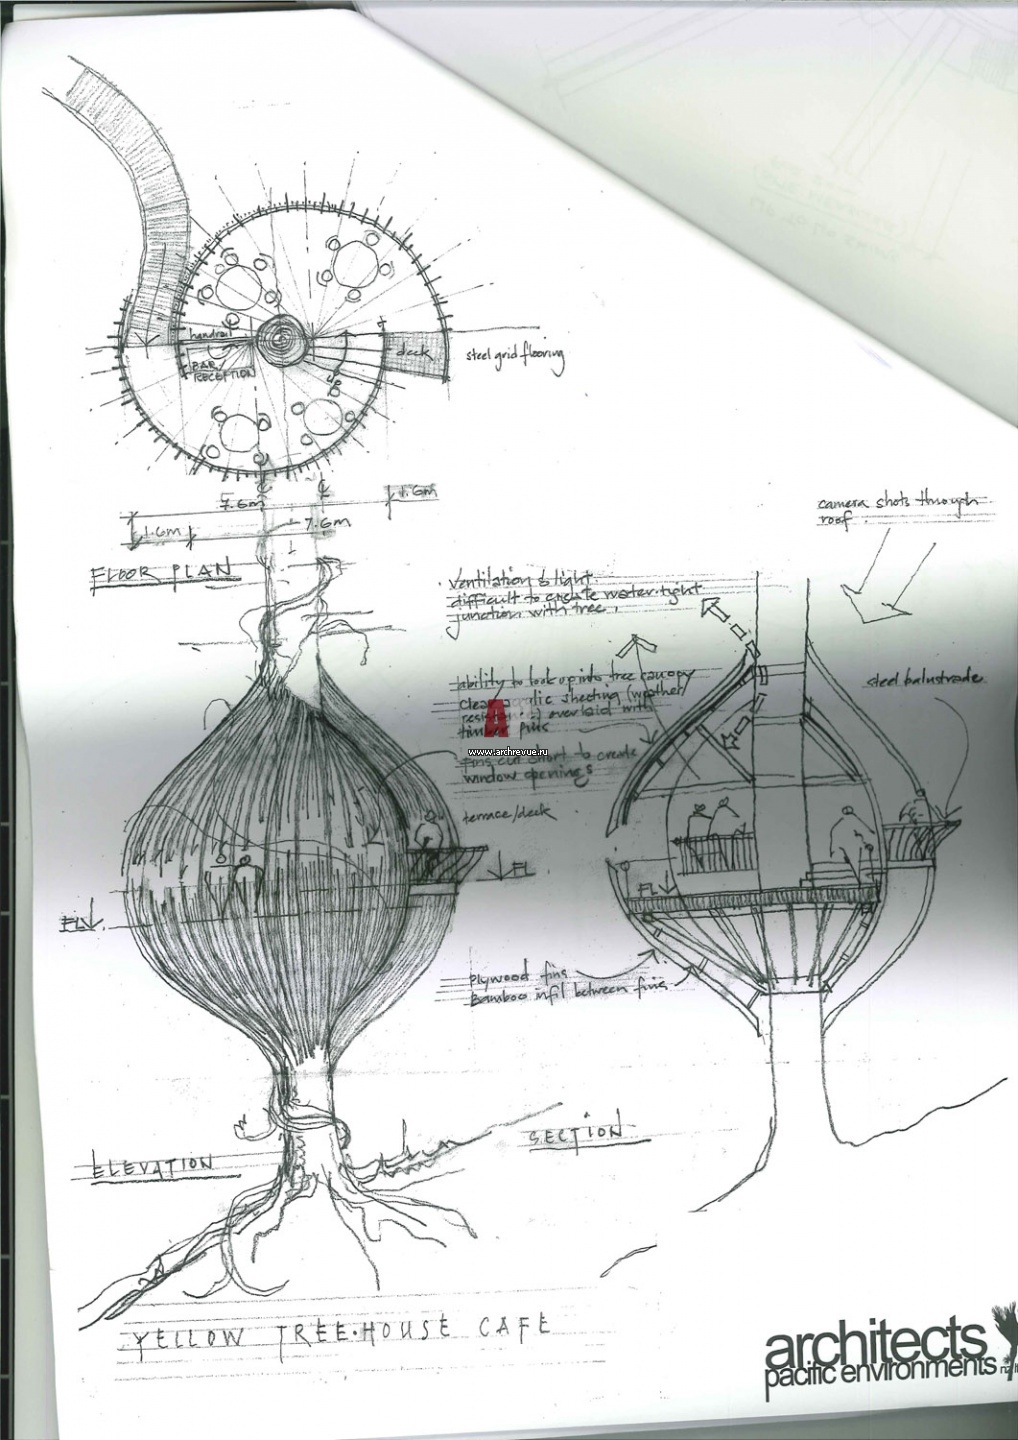 handrail
BAR
RECEPTION
up
deck
steel grid flooring
7.6m
1.6m
1.6m
7.6m
FLOOR PLAN
camera shots through
roof
ventilation & light
difficult to create water-tight
junction with tree
ability to look up into tree canopy
sheeting (weather
overlaid with
fins
fins cut short to create
window openings
www.archrevue.ru
steel balustrade
terrace/deck
FL
FL
FL
plywood fins
Bamboo infil between fins
ELEVATION
SECTION
YELLOW TREE·HOUSE CAFE
architects
pacific environments